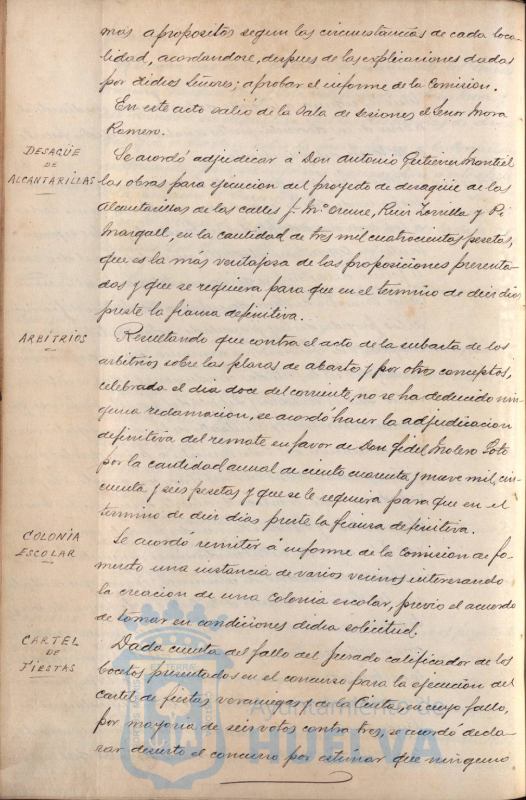 mas apropositos segun las circunstancias de cada loca-
lidad, acordandose, despues de las explicaciones dadas
por didios Señores; aprobar el informe de la Comision.
En este acto salió de la Sala de sesiones el Señor Mora
Romero.
DESAGÜE
DE
ALCANTARILLAS
Se acordó adjudicar á Don Antonio Gutierrez Montiel
las obras para ejecucion del proyecto de desagüe de las
Alcantarillas de las calles J. Mª Orense, Ruiz Zorrilla y Pi
Margall, en la cantidad de tres mil cuatrocientas pesetas,
que es la más ventajosa de las proposiciones presenta-
das y que se requiera para que en el termino de diez dias
preste la fianza definitiva.
ARBÍTRIOS
Resultando que contra el acto de la subasta de los
arbitrios sobre las plazas de abastos y por otros conceptos,
celebrada el dia doce del corriente, no se ha deducido nin-
guna reclamacion, se acordó hacer la adjudicacion
definitiva del remate en favor de Don Fidel Molero Soto
por la cantidad anual de ciento cuarenta y nueve mil, cin-
cuenta y seis pesetas y que se le requiera para que en el
termino de diez dias preste la fianza definitiva.
COLONIA
ESCOLAR
Se acordó remitir á informe de la Comision de fo-
mento una instancia de varios vecinos interesando
la creacion de una colonia escolar, previo el acuerdo
de tomar en condiciones dicha solicitud.
CARTEL
DE
FIESTAS
Dada cuenta del fallo del Jurado calificador de los
bocetos presentados en el concurso para la ejecucion del
cartel de fiestas veraniegas y de la Cinta en cuyo fallo,
por mayoria de seis votos contra tres, se acordó decla-
rar desierto el concurso por estimar que ninguno
Ayuntamiento de
HUELVA